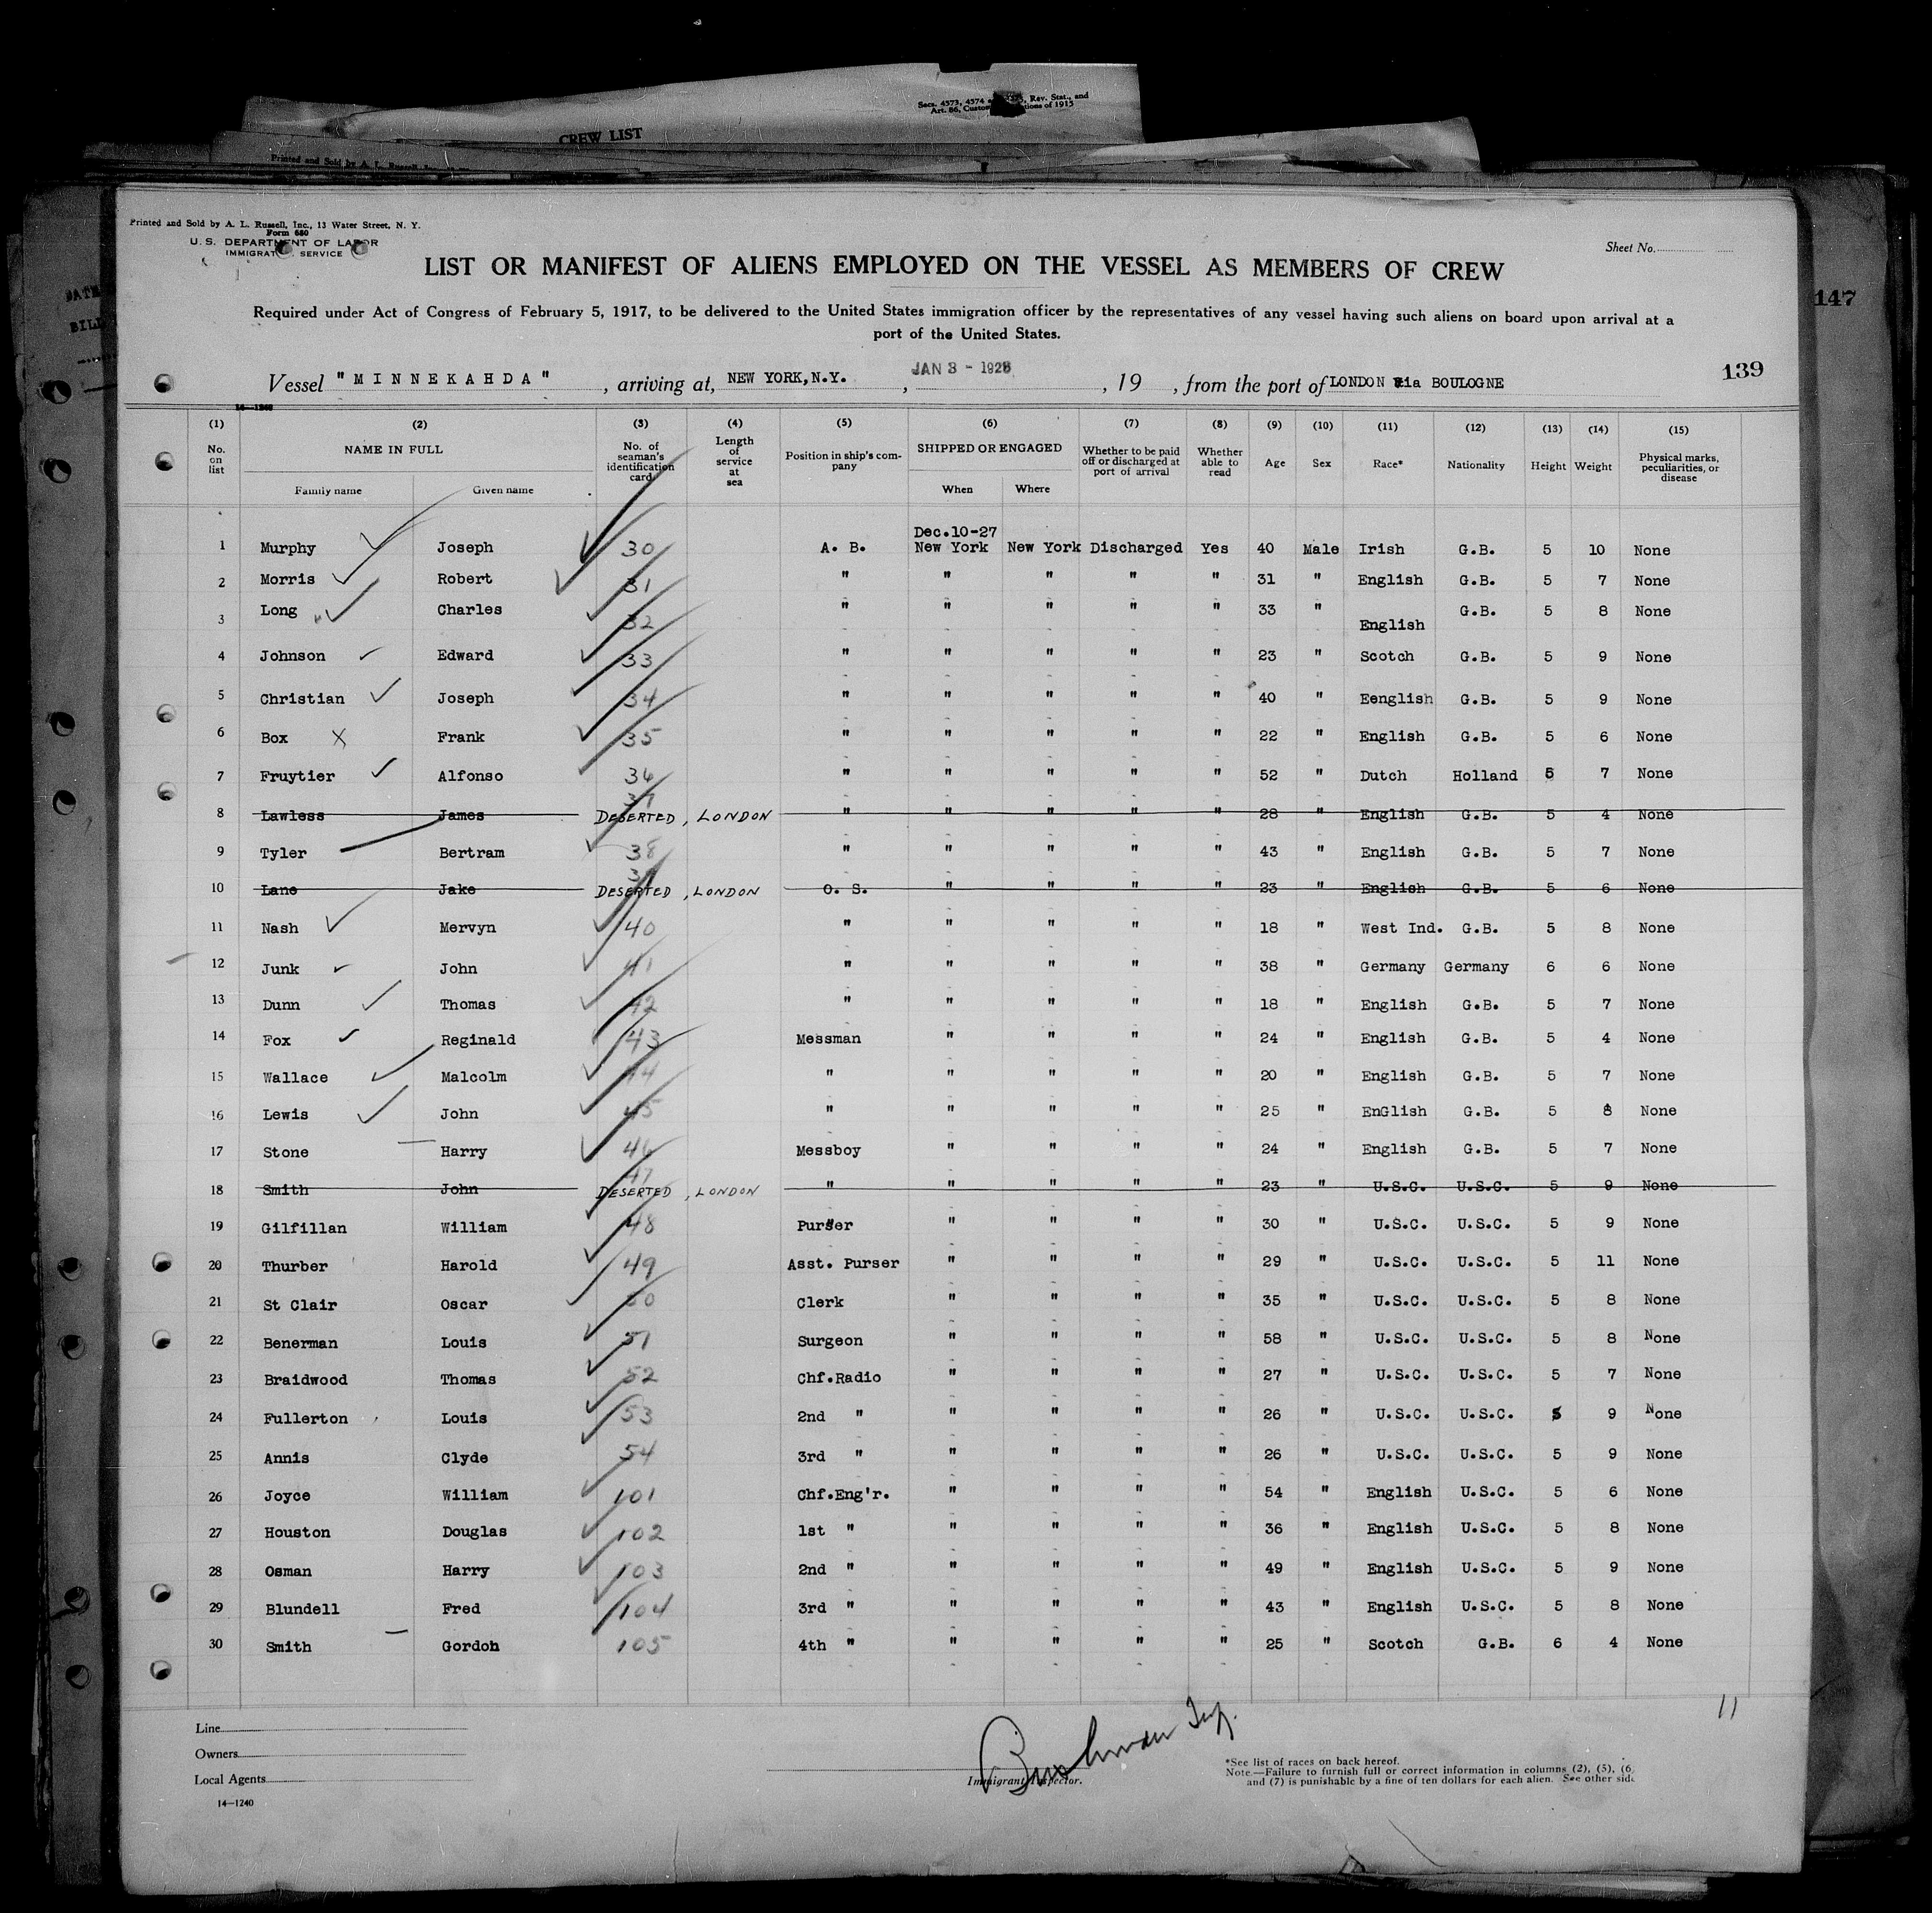 Secs. 4573, 4574 Rev. Stat., and
Art. 86, of 1915
CREW LIST
Printed and Sold by A. L.
Printed and Sold by A. L. Russell, Inc., 13 Water Street, N. Y.
Form 680
U. S. DEPARTMENT OF LABOR
IMMIGRAT SERVICE
Sheet No.
LIST OR MANIFEST OF ALIENS EMPLOYED ON THE VESSEL AS MEMBERS OF CREW
147
Required under Act of Congress of February 5, 1917, to be delivered to the United States immigration officer by the representatives of any vessel having such aliens on board upon arrival at a
port of the United States.
Vessel "MINNEKAHDA", arriving at, NEW YORK,N.Y., JAN 3 - 1928, 19 , from the port of LONDON via BOULOGNE
139
14-1240
(1) (2) (3) (4) (5) (6) (7) (8) (9) (10) (11) (12) (13) (14) (15)
No. on list NAME IN FULL Family name Given name No. of seaman's identification card Length of service at sea Position in ship's company SHIPPED OR ENGAGED When Where Whether to be paid off or discharged at port of arrival Whether able to read Age Sex Race* Nationality Height Weight Physical marks, peculiarities, or disease
Dec.10-27
1 Murphy Joseph 30 A. B. New York New York Discharged Yes 40 Male Irish G.B. 5 10 None
2 Morris Robert 31 " " " " " 31 " English G.B. 5 7 None
3 Long Charles 32 " " " " " 33 " English G.B. 5 8 None
4 Johnson Edward 33 " " " " " 23 " Scotch G.B. 5 9 None
5 Christian Joseph 34 " " " " " 40 " Eenglish G.B. 5 9 None
6 Box X Frank 35 " " " " " 22 " English G.B. 5 6 None
7 Fruytier Alfonso 36 " " " " " 52 " Dutch Holland 5 7 None
8 Lawless James 37 DESERTED, LONDON " " " " " 28 " English G.B. 5 4 None
9 Tyler Bertram 38 " " " " " 43 " English G.B. 5 7 None
10 Lane Jake 39 DESERTED, LONDON O. S. " " " " 23 " English G.B. 5 6 None
11 Nash Mervyn 40 " " " " " 18 " West Ind. G.B. 5 8 None
12 Junk John 41 " " " " " 38 " Germany Germany 6 6 None
13 Dunn Thomas 42 " " " " " 18 " English G.B. 5 7 None
14 Fox Reginald 43 Messman " " " " 24 " English G.B. 5 4 None
15 Wallace Malcolm 44 " " " " " 20 " English G.B. 5 7 None
16 Lewis John 45 " " " " " 25 " EnGlish G.B. 5 8 None
17 Stone Harry 46 Messboy " " " " 24 " English G.B. 5 7 None
18 Smith John 47 DESERTED, LONDON " " " " " 23 " U.S.C. U.S.C. 5 9 None
19 Gilfillan William 48 Purser " " " " 30 " U.S.C. U.S.C. 5 9 None
20 Thurber Harold 49 Asst. Purser " " " " 29 " U.S.C. U.S.C. 5 11 None
21 St Clair Oscar 50 Clerk " " " " 35 " U.S.C. U.S.C. 5 8 None
22 Benerman Louis 51 Surgeon " " " " 58 " U.S.C. U.S.C. 5 8 None
23 Braidwood Thomas 52 Chf.Radio " " " " 27 " U.S.C. U.S.C. 5 7 None
24 Fullerton Louis 53 2nd " " " " " 26 " U.S.C. U.S.C. 5 9 None
25 Annis Clyde 54 3rd " " " " " 26 " U.S.C. U.S.C. 5 9 None
26 Joyce William 101 Chf.Eng'r. " " " " 54 " English U.S.C. 5 6 None
27 Houston Douglas 102 1st " " " " " 36 " English U.S.C. 5 8 None
28 Osman Harry 103 2nd " " " " " 49 " English U.S.C. 5 9 None
29 Blundell Fred 104 3rd " " " " " 43 " English U.S.C. 5 8 None
30 Smith Gordon 105 4th " " " " " 25 " Scotch G.B. 6 4 None
11
Line
Owners
Local Agents
14—1240
Immigrant Inspector.
*See list of races on back hereof.
Note.—Failure to furnish full or correct information in columns (2), (5), (6)
and (7) is punishable by a fine of ten dollars for each alien. See other side